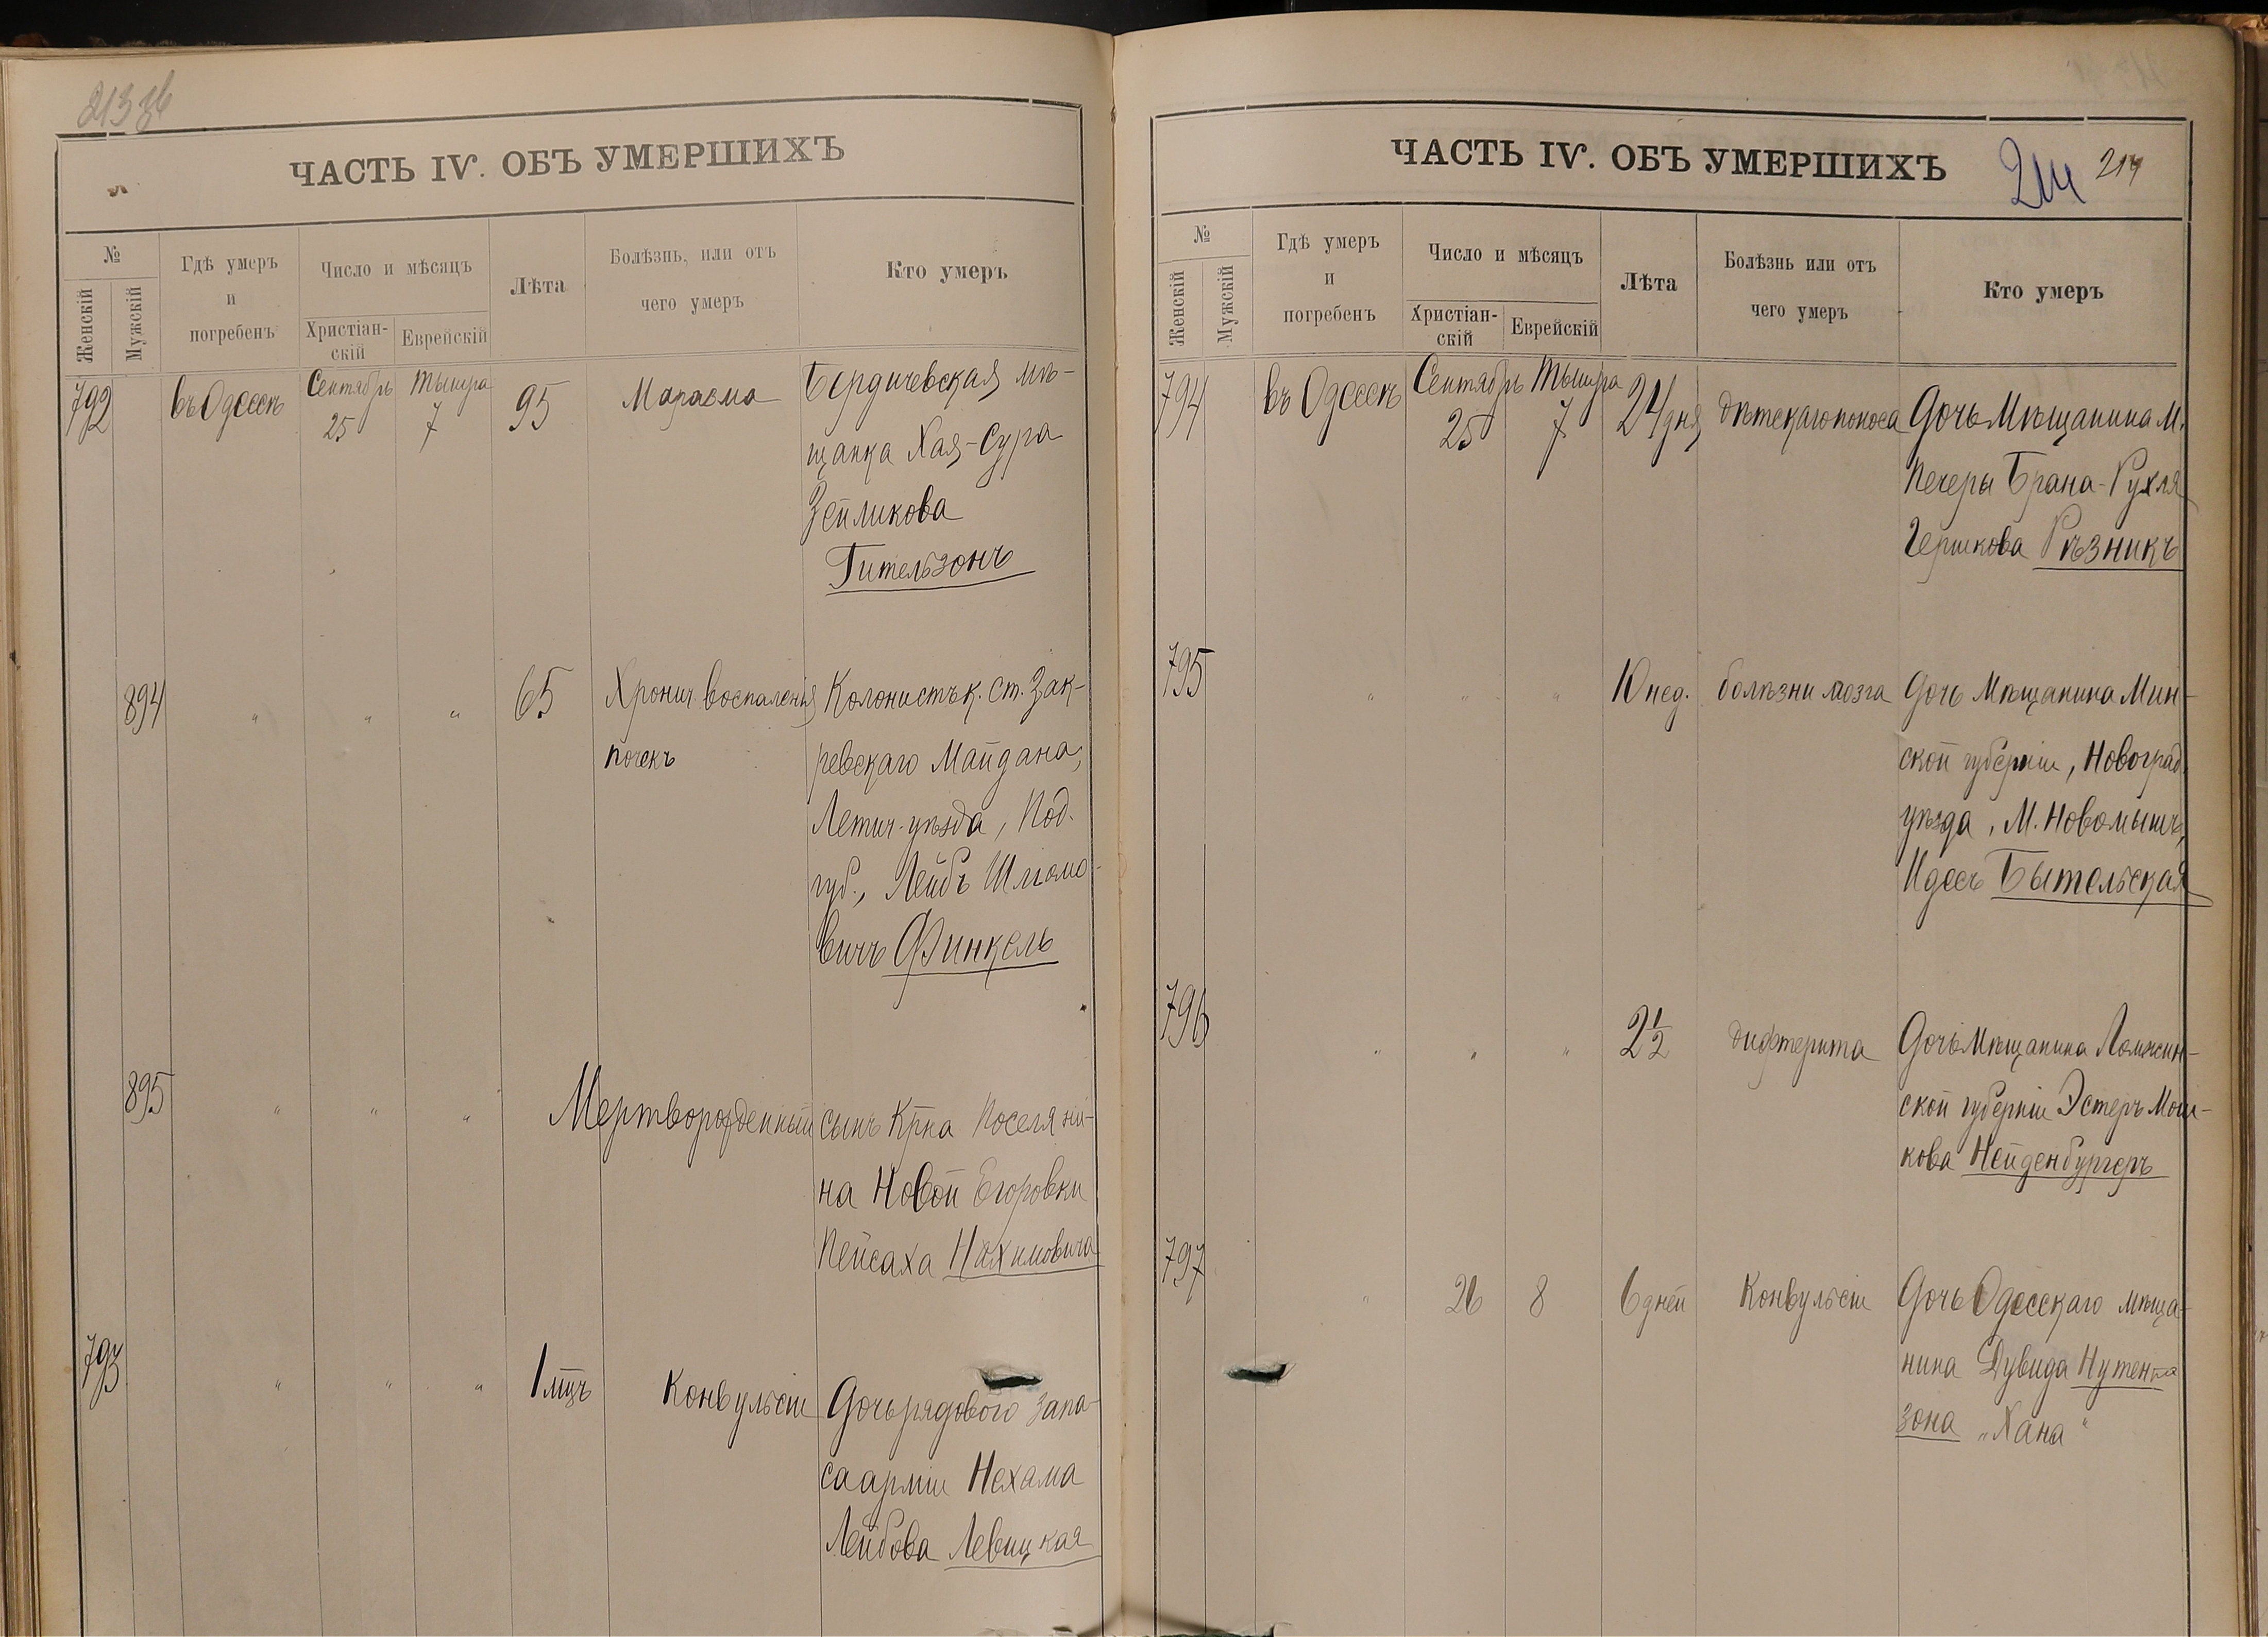 213 об
ЧАСТЬ IV. ОБЪ УМЕРШИХЪ
№
Женскій
Мужскій
Гдѣ умеръ
и
погребенъ
Число и мѣсяцъ
Христіан-
скій
Еврейскій
Лѣта
Болѣзнь, или отъ
чего умеръ
Кто умеръ
792 въ Одессѣ Сентябрь 25 Тышра 7 95 Маразма Бердичевская мѣ-
щанка Хая-Сура
Зейликова
Гительзонъ
894 " " " 65 Хронич. воспаленія Колонистъ к. ст. Зак-
почекъ ревскаго Майдана,
Летич. уѣзда, Под.
губ., Лейбъ Шлемо-
вичъ Финкель
895 " " " Мертворожденный сынъ Крна Поселяни-
на Новой Егоровки
Пейсаха Нахимовича
793 " " " 1 мцъ Конвульсіи Дочь рядового запа-
са арміи Нехама
Лейбова Левицкая
ЧАСТЬ IV. ОБЪ УМЕРШИХЪ
214 214
№
Женскій
Мужскій
Гдѣ умеръ
и
погребенъ
Число и мѣсяцъ
Христіан-
скій
Еврейскій
Лѣта
Болѣзнь или отъ
чего умеръ
Кто умеръ
794 въ Одессѣ Сентябрь 25 Тышра 7 24 дня дѣтскаго поноса Дочь Мѣщанина М.
Печеры Брана-Рухля
Гершкова Рѣзникъ
795 " " " 10 нед. болѣзни мозга Дочь Мѣщанина Мин-
ской губерніи, Новоград.
уѣзда, М. Новомышъ,
Идесъ Бытельская
796 " " " 2½ дифтерита Дочь Мѣщанина Ломжин-
ской губерніи Эстеръ Мош-
кова Нейденбургеръ
797 " 26 8 6 дней Конвульсіи Дочь Одесскаго мѣща-
нина Дувида Нутен
зона „Хана"